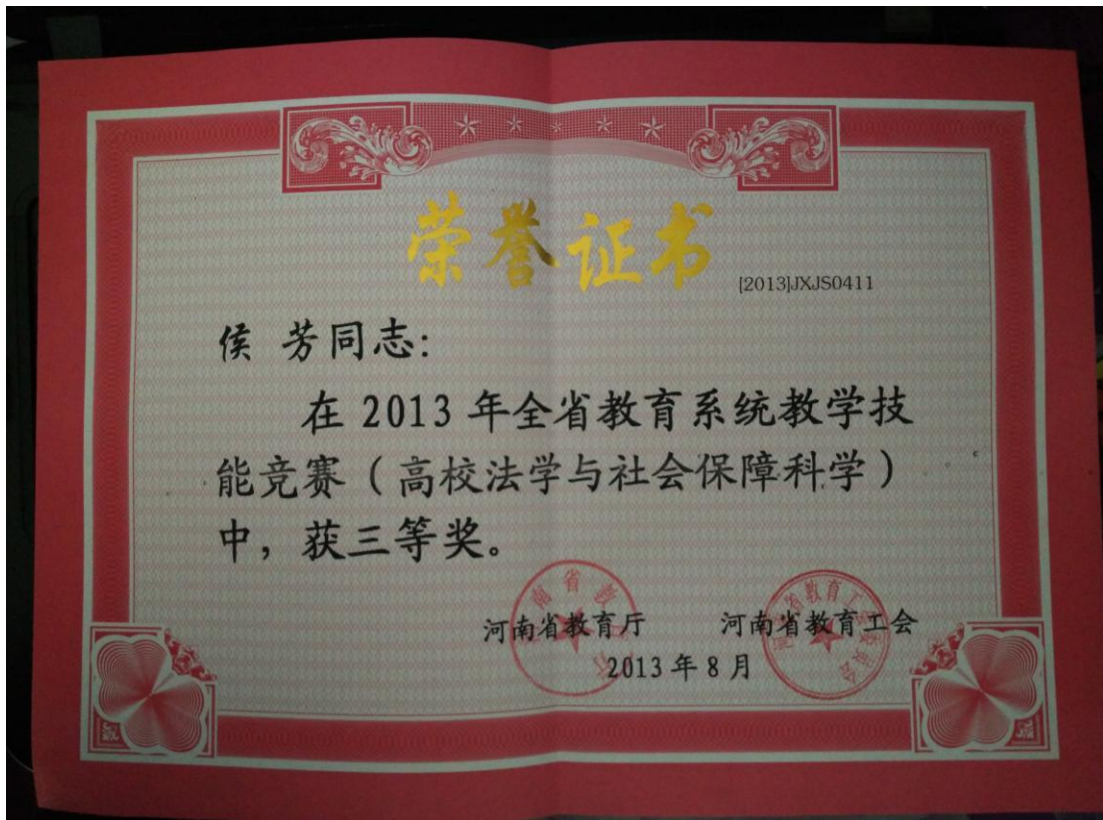 荣誉证书
[2013]JXJS0411
侯 芳同志:
在 2013 年全省教育系统教学技
能竞赛（高校法学与社会保障科学）
中，获三等奖。
河南省教育厅 河南省教育工会
2013 年 8 月